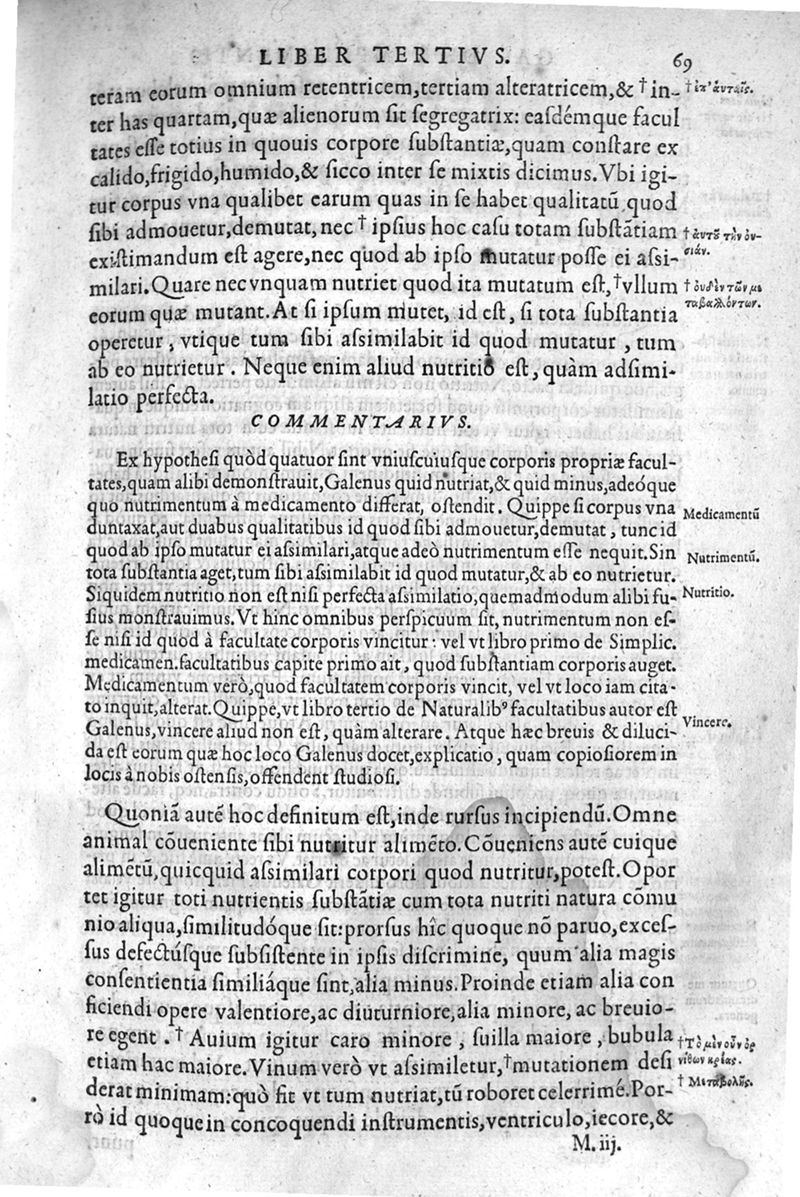 LIBER TERTIVS. 69
teram eorum omnium retentricem,tertiam alteratricem,& † in-
ter has quartam,quæ alienorum sit segregatrix: easdémque facul
tates esse totius in quouis corpore substantiæ,quam constare ex
calido,frigido,humido,& sicco inter se mixtis dicimus.Vbi igi-
tur corpus vna qualibet earum quas in se habet qualitatū quod
sibi admouetur,demutat, nec † ipsius hoc casu totam substātiam
existimandum est agere,nec quod ab ipso mutatur posse ei assi-
milari.Quare nec vnquam nutriet quod ita mutatum est,†vllum
eorum quæ mutant.At si ipsum mutet, id est, si tota substantia
operetur, vtique tum sibi assimilabit id quod mutatur , tum
ab eo nutrietur . Neque enim aliud nutritio est, quàm adsimi-
latio perfecta.
† ἐπ' ἀυταῖς.
† ἀυτοῦ τὴν ὀυ-
σιάν.
† ὀυδὲν τῶν με
ταβαλλόντων.
COMMENTARIVS.
Ex hypothesi quòd quatuor sint vniuscuiusque corporis propriæ facul-
tates,quam alibi demonstrauit,Galenus quid nutriat,& quid minus,adeóque
quo nutrimentum à medicamento differat, ostendit. Quippe si corpus vna
duntaxat,aut duabus qualitatibus id quod sibi admouetur,demutat, tunc id
quod ab ipso mutatur ei assimilari,atque adeò nutrimentum esse nequit.Sin
tota substantia aget,tum sibi assimilabit id quod mutatur,& ab eo nutrietur.
Siquidem nutritio non est nisi perfecta assimilatio,quemadmodum alibi fu-
sius monstrauimus.Vt hinc omnibus perspicuum sit, nutrimentum non es-
se nisi id quod à facultate corporis vincitur: vel vt libro primo de Simplic.
medicamen.facultatibus capite primo ait, quod substantiam corporis auget.
Medicamentum verò,quod facultatem corporis vincit, vel vt loco iam cita-
to inquit,alterat.Quippe,vt libro tertio de Naturalibꝰ facultatibus autor est
Galenus,vincere aliud non est, quàm alterare. Atque hæc breuis & diluci-
da est eorum quæ hoc loco Galenus docet,explicatio, quam copiosiorem in
locis à nobis ostensis,offendent studiosi.
Medicamentū
Nutrimentū.
Nutritio.
Vincere.
Quoniā autē hoc definitum est,inde rursus incipiendū.Omne
animal cōueniente sibi nutritur alimēto.Cōueniens autē cuique
alimētū,quicquid assimilari corpori quod nutritur,potest.Opor
tet igitur toti nutrientis substātiæ cum tota nutriti natura cōmu
nio aliqua,similitudóque sit:prorsus hîc quoque nō paruo,exces-
sus defectúsque subsistente in ipsis discrimine, quum alia magis
consentientia similiáque sint,alia minus.Proinde etiam alia con
ficiendi opere valentiore,ac diuturniore,alia minore, ac breuio-
re egent . † Auium igitur caro minore , suilla maiore , bubula
etiam hac maiore.Vinum verò vt assimiletur,†mutationem desi
derat minimam:quò fit vt tum nutriat,tū roboret celerrimé.Por-
rò id quoque in concoquendi instrumentis,ventriculo,iecore,&
† Τὸ μὲν οὖν ὀρ
νίθων κρέας.
† Μεταβολῆς.
M. iij.